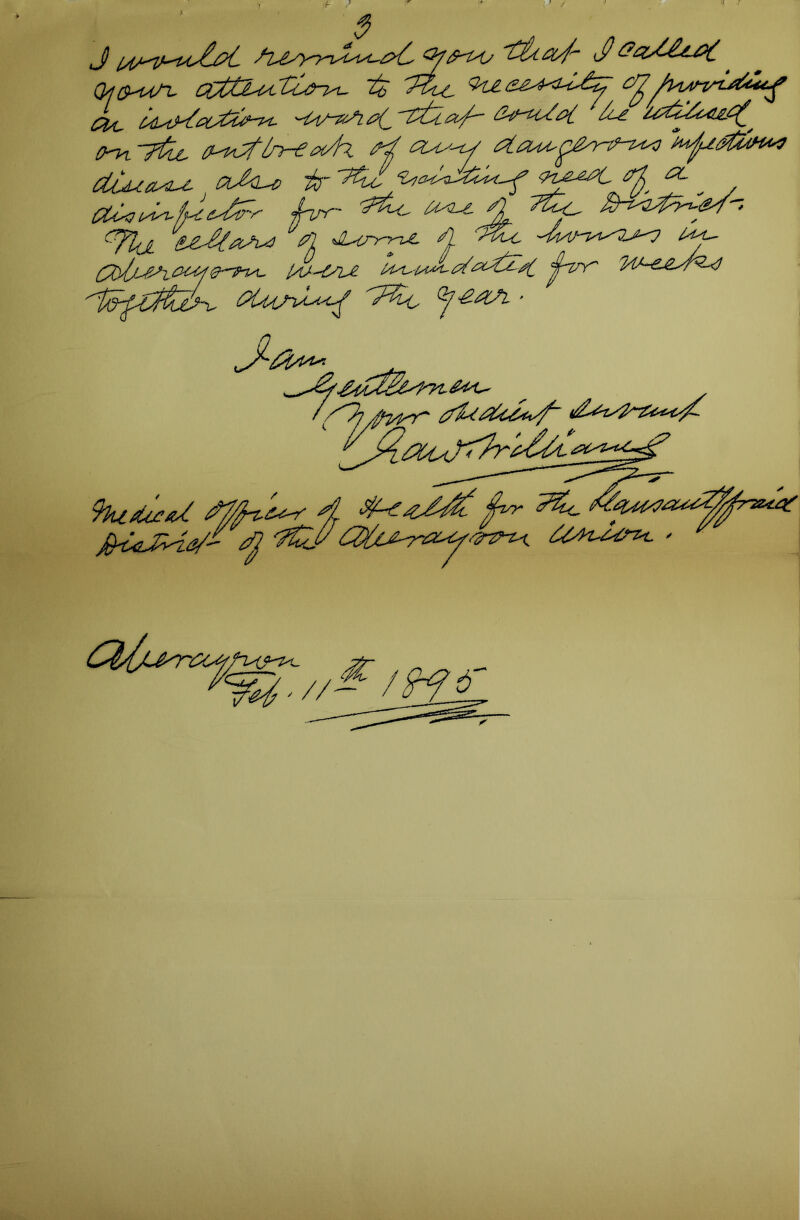 3
I would remind you that I called
your attention to the necessity of providing
an isolation ward that could be utilised
on the outbreak of any dangerous infectious
disease, also to the existing need of a
disinfector for the use of the District.
The cellars of some of the houses in
Aberayron were inundated for weeks
together during the year.
I am
Gentlemen
Your obedient Servant
Medical Officer of Health for the Llansantffraid
District of the Aberayron Union.
Aberayron
Feb. 11th 1895